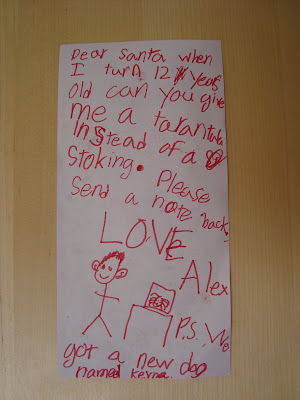 Dear Santa when
I turn 12 years
old can you give
me a tarantula
Instead of a
Stoking. Please
Send a note back.
LOVE
Alex
P.S. We
got a new dog
named